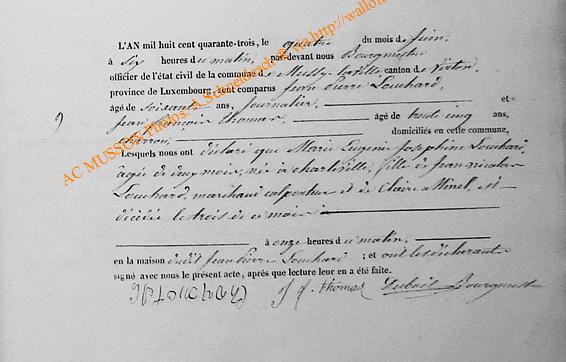 L'AN mil huit cent quarante-trois, le quatre du mois de juin,
à six heures du matin, par-devant nous Bourgmestre
officier de l'état civil de la commune de Mussy-la-ville canton de Virton,
province de Luxembourg, sont comparus Jean Pierre Louchard,
âgé de soixante ans, journalier, et
jean françois thomas, âgé de trente cinq ans,
charron, domiciliés en cette commune,
Lesquels nous ont déclaré que Marie Eugenie Josephine Louchard,
agée de deux mois, née à charleville, fille de jean nicolas
Louchard, marchand colporteur et de Claire Minel, est
décédée le trois de ce mois
à onze heures du matin,
en la maison dudit Jean Pierre Louchard ; et ont les déclarants
signé avec nous le présent acte, après que lecture leur en a été faite.
J f. thomas Dubois Bourgmestre
AC MUSSON Photos: A Schneidesch@ via http://wallon